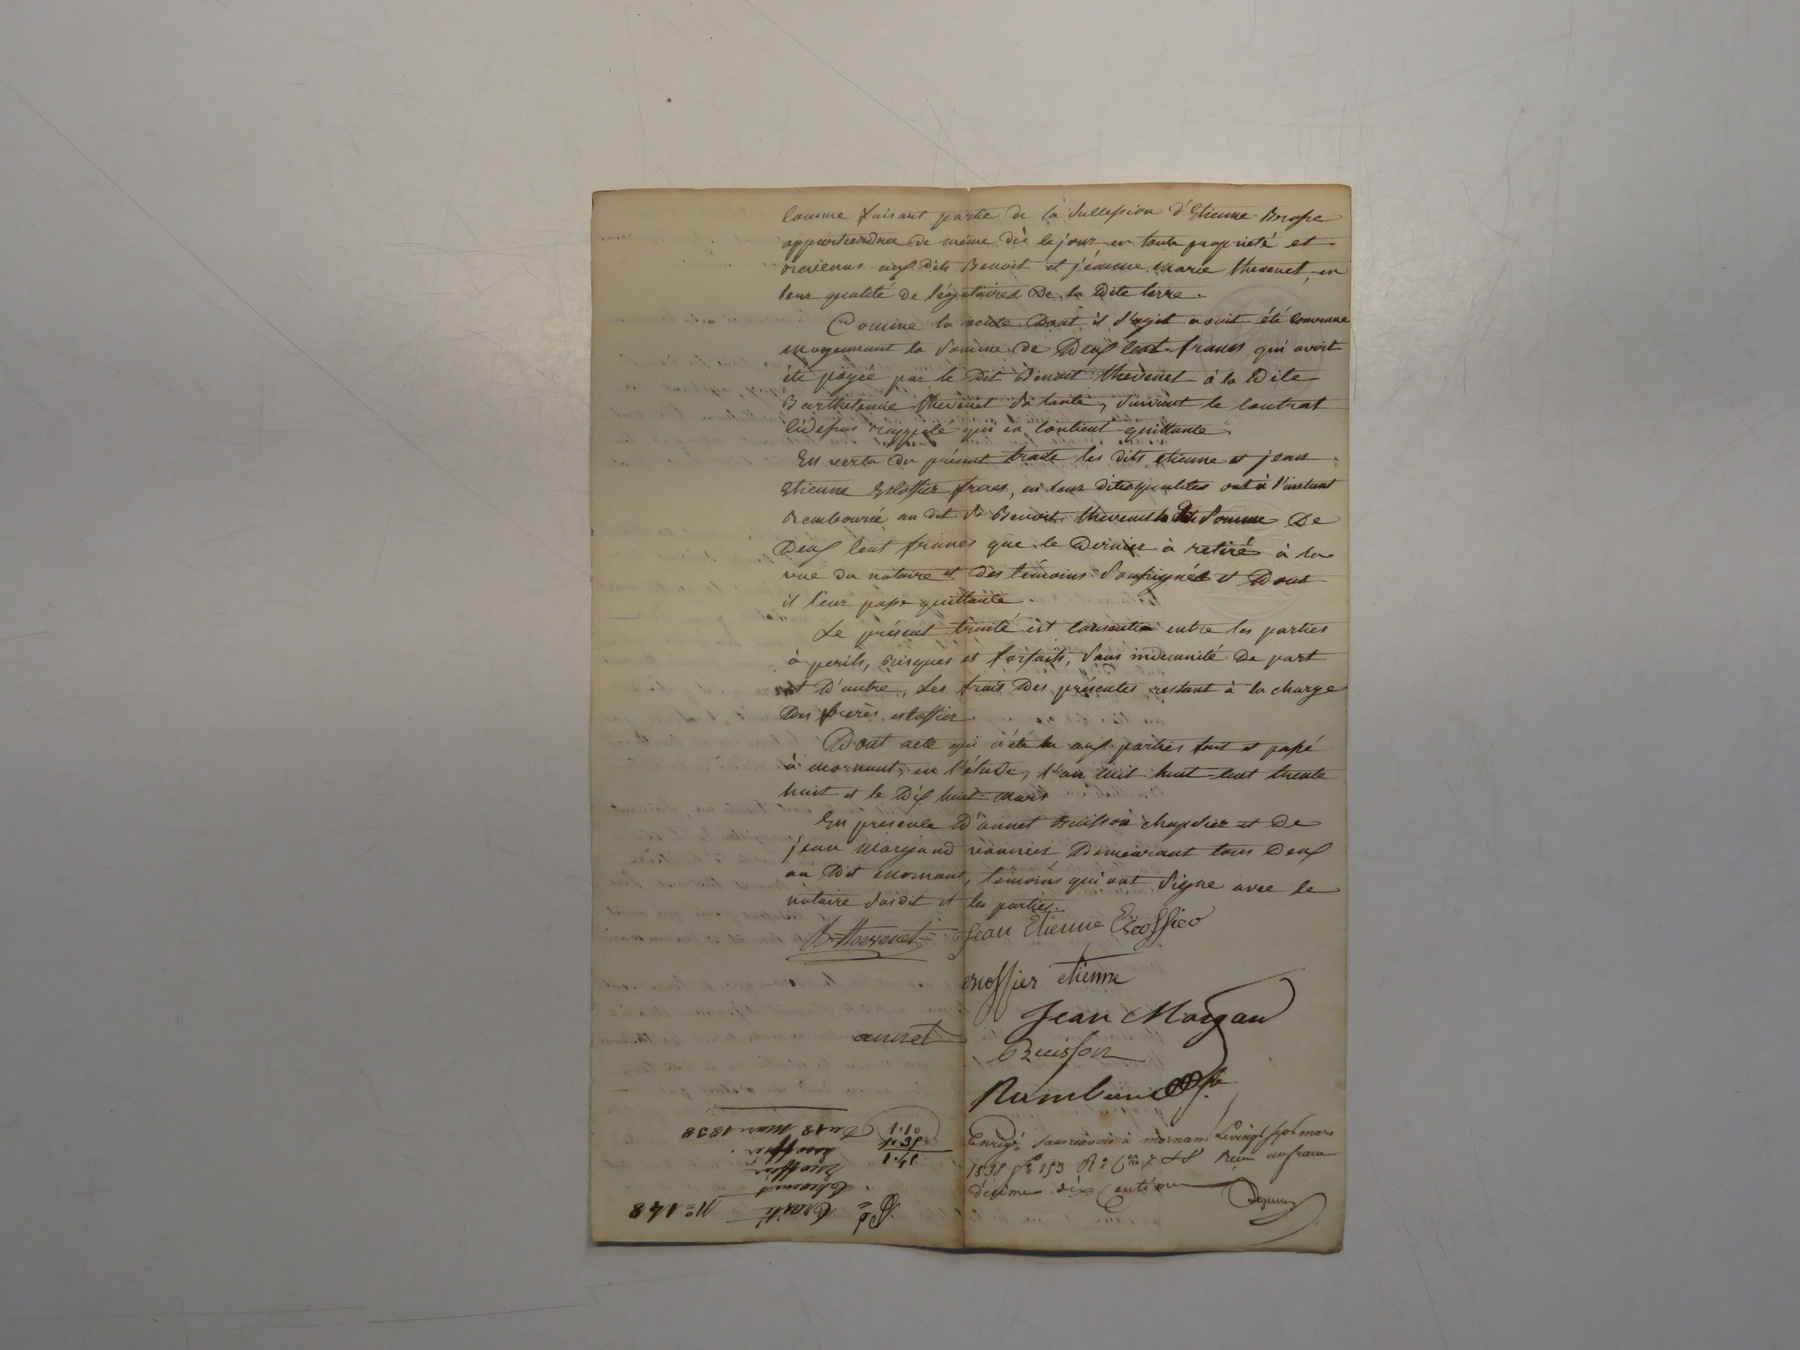 Comme faisant partie de la Succession d'Etienne Brosse
appartiendra de même dès le jour en toute propriété et
revenus aux dits Benoit et jeanne marie thevenet, en
leur qualité de légataires De la Dite terre.
Comme la vente Dont il S'agit avoit été convenue
moyennant la Somme de Deux Cent francs qui avoit
été payée par le Dit Benoit thevenet à la Dite
Barthelemie thevenet Sa tante, Suivant le Contrat
Cidessus rappelé qui en Contient quittance.
En vertu du présent traité les dits etienne et jean
Etienne Escoffier freres, en leurs dites qualités ont à l'instant
Remboursé au dit Sr Benoit thevenet la Dite Somme De
Deux Cent francs que le Dernier à retiré à la
vue du notaire et des témoins Soussignés et Dont
il leur passe quittance.
Le présent traité est Consenti entre les parties
à perils, risques et forfaits, Sans indemnité De part
et D'autre, Les frais Des présentes restant à la charge
Des freres escoffier.
Dont acte qui à été lu aux parties fait et passé
à mornant, en l'étude, l'an mil huit-Cent trente
huit et le Dix huit mars
En presence D'annet Buisson chapelier et De
jean Marjand Demeurant tous Deux
au Dit mornant, témoins qui ont Signé avec le
notaire Susdit et les parties.
B Thevenet Jean Etienne Escoffier
escoffier etienne
Jean Morjan
annet Buisson
Enregé Sans renvoi à mornant Le vingt Sept mars
1838 fo 153 Ro Ces 7 et 8 Reçu un franc
décime dix Centimes
No 148
Traité
thevenet
Escoffier
Escoffier
Du 18 Mars 1838